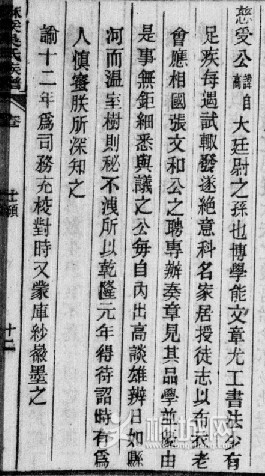 慈受公諱自高大廷尉之孫也博學能文章尤工書法少有
足疾每遇試輒發遂絶意科名家居授徒志以布衣老
會應相國張文和公之聘專辦奏章見其品學並
是事無鉅細悉與議之公每自內出高談雄辨日如懸
河而溫室樹則秘不洩所以乾隆元年得待詔時有爲
人慎蜜朕所深知之
諭十二年爲司務充校對時又蒙庫紗徽墨之
氏族譜
卷
十二